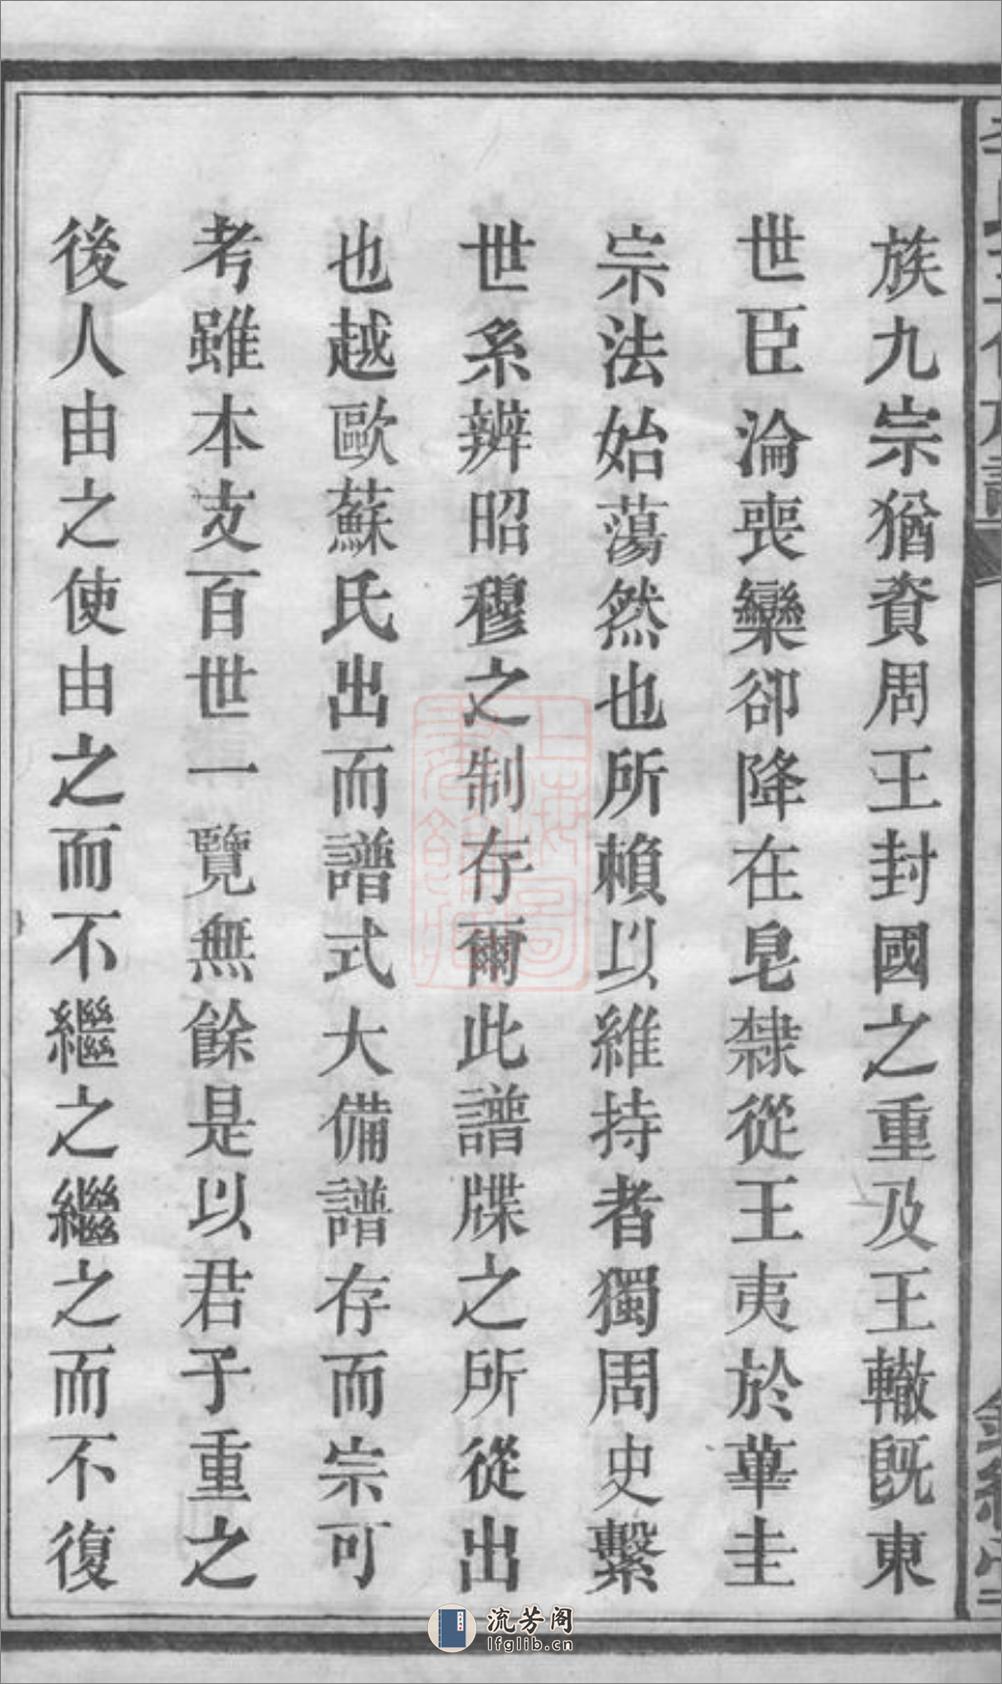 族九宗猶資周王封國之重及王轍旣東
世臣淪喪欒卻降在皂隸從王夷於蓽圭
宗法始蕩然也所賴以維持者獨周史繫
世系辨昭穆之制存爾此譜牒之所從出
也越歐蘇氏出而譜式大備譜存而宗可
考雖本支百世一覽無餘是以君子重之
後人由之使由之而不繼之繼之而不復
上海圖
流芳阁
lfglib.cn